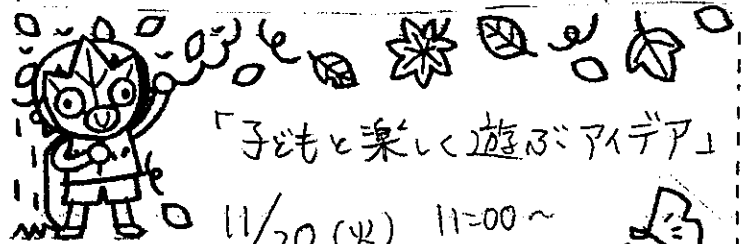 「子どもと楽しく遊ぶアイデア」
11/20(火) 11:00~